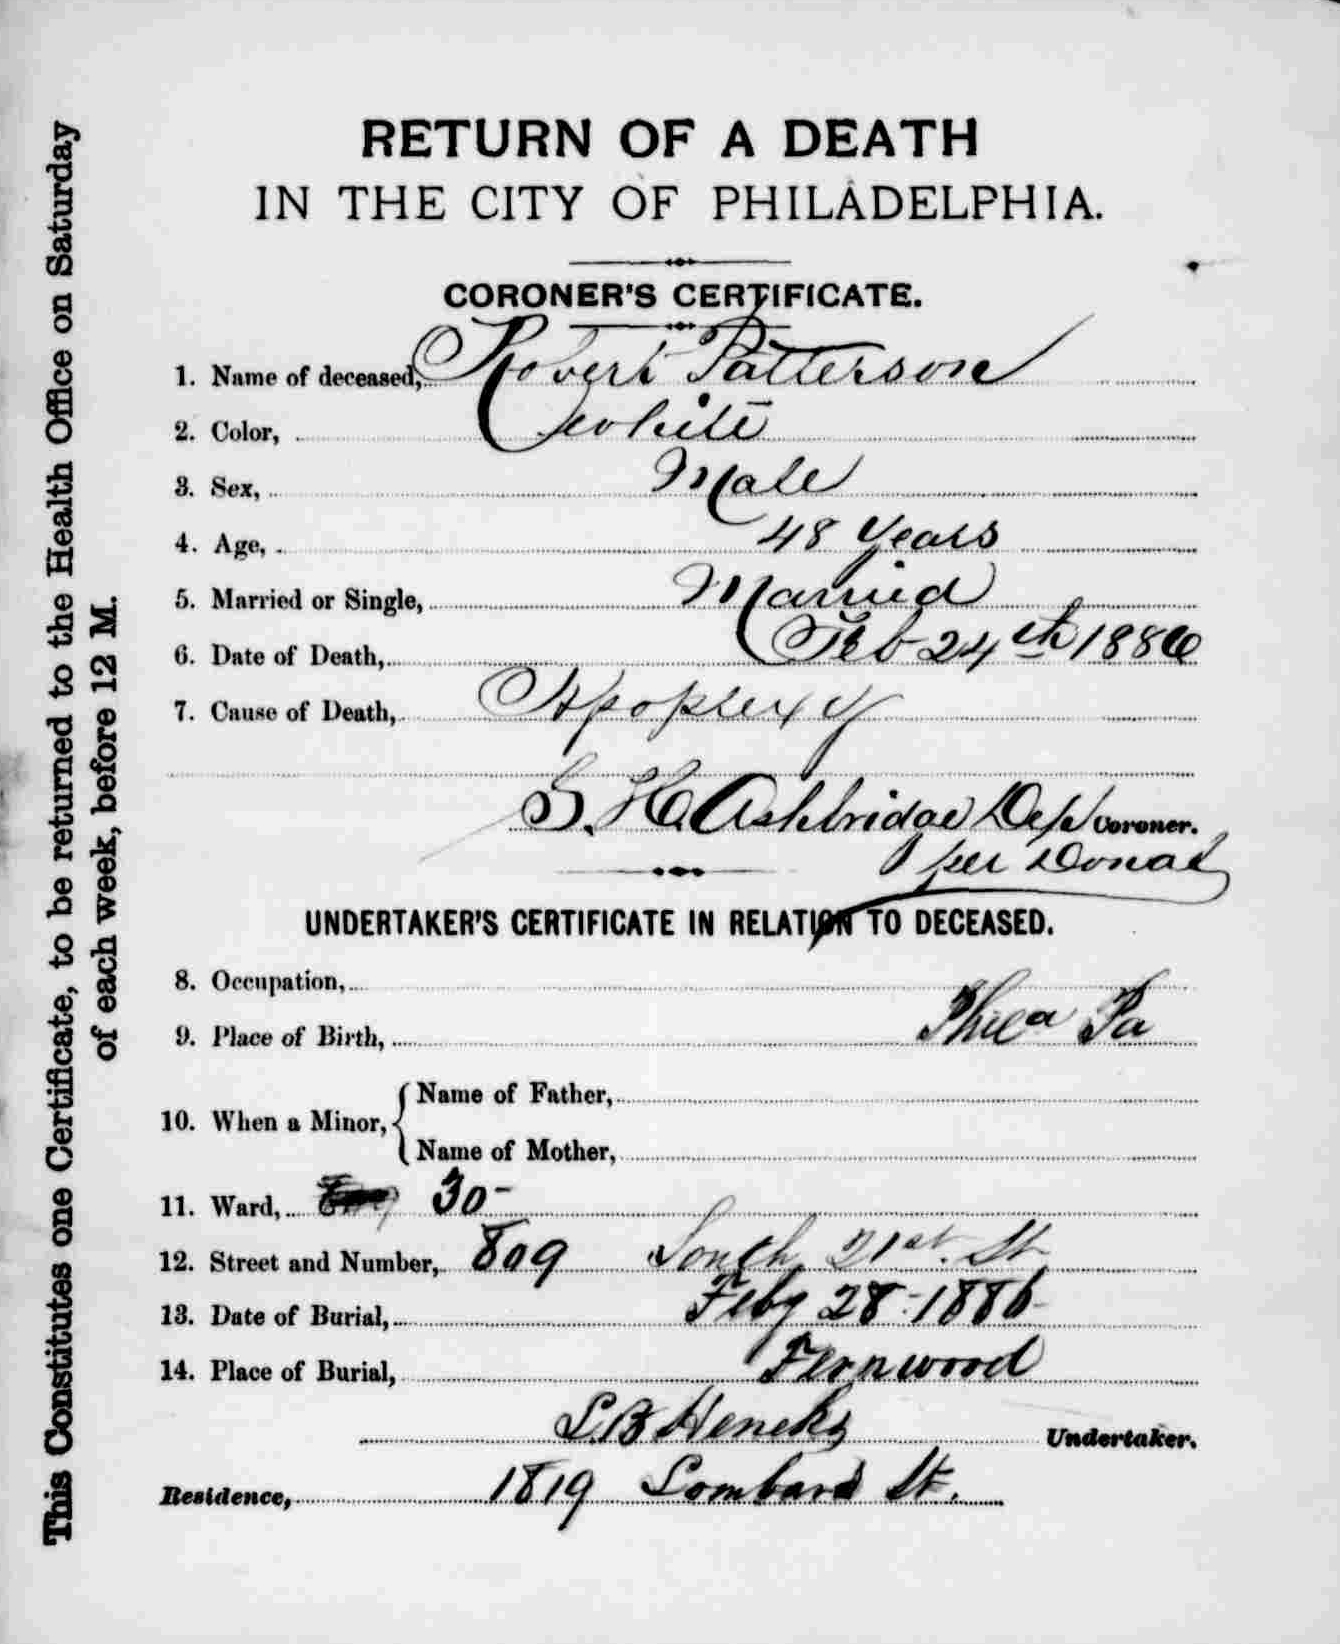 This Constitutes one Certificate, to be returned to the Health Office on Saturday
of each week, before 12 M.
RETURN OF A DEATH
IN THE CITY OF PHILADELPHIA.
CORONER'S CERTIFICATE.
1. Name of deceased, Robert Patterson
2. Color, white
3. Sex, Male
4. Age, 48 years
5. Married or Single, Married
6. Date of Death, Feb 24th 1886
7. Cause of Death, Apoplexy
S. H. Ashbridge Dep Coroner.
per Donal
UNDERTAKER'S CERTIFICATE IN RELATION TO DECEASED.
8. Occupation,
9. Place of Birth, Phila Pa
10. When a Minor, Name of Father,
Name of Mother,
11. Ward, 30-
12. Street and Number, 809 South 21st. St
13. Date of Burial, Feby 28-1886
14. Place of Burial, Fernwood
L.B Hencks Undertaker.
Residence, 1819 Lombard St.